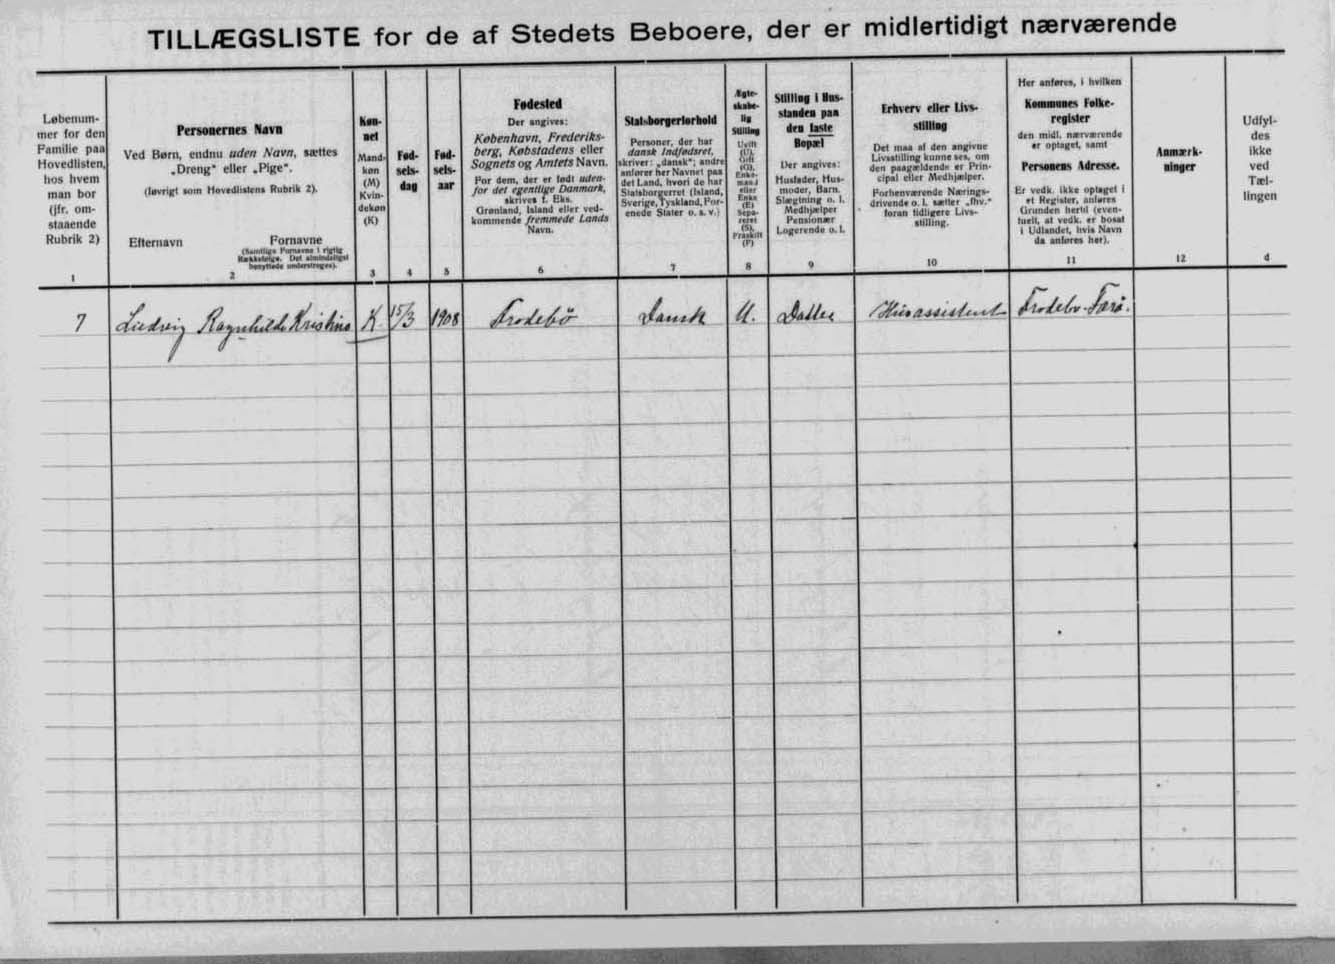 TILLÆGSLISTE for de af Stedets Beboere, der er midlertidigt nærværende
Løbenum-
mer for den
Familie paa
Hovedlisten,
hos hvem
man bor
(jfr. om-
staaende
Rubrik 2)
1
Personernes Navn
Ved Børn, endnu uden Navn, sættes
„Dreng“ eller „Pige“.
(Iøvrigt som Hovedlistens Rubrik 2).
Efternavn
Fornavne
(Samtlige Fornavne i rigtig
Rækkefølge. Det almindeligst
benyttede understreges).
2
Køn-
net
Mand-
køn
(M)
Kvin-
dekøn
(K)
3
Fød-
sels-
dag
4
Fød-
sels-
aar
5
Fødested
Der angives:
København, Frederiks-
berg, Købstadens eller
Sognets og Amtets Navn.
For dem, der er født uden-
for det egentlige Danmark,
skrives f. Eks.
Grønland, Island eller ved-
kommende fremmede Lands
Navn.
6
Statsborgerforhold
Personer, der har
dansk Indfødsret,
skriver: „dansk“; andre
anfører her Navnet paa
det Land, hvori de har
Statsborgerret (Island,
Sverige, Tyskland, For-
enede Stater o. s. v.)
7
Ægte-
skabe-
lig
Stilling
Ugift
(U),
Gift
(G),
Enke-
mand
eller
Enke
(E)
Sepa-
reret
(S),
Fraskilt
(F)
8
Stilling i Hus-
standen paa
den faste
Bopæl
Der angives:
Husfader, Hus-
moder, Barn,
Slægtning o. l.
Medhjælper
Pensionær
Logerende o. l.
9
Erhverv eller Livs-
stilling
Det maa af den angivne
Livsstilling kunne ses, om
den paagældende er Prin-
cipal eller Medhjælper.
Forhenværende Nærings-
drivende o. l. sætter „fhv.“
foran tidligere Livs-
stilling.
10
Her anføres, i hvilken
Kommunes Folke-
register
den midl. nærværende
er optaget, samt
Personens Adresse.
Er vedk. ikke optaget i
et Register, anføres
Grunden hertil (even-
tuelt, at vedk. er bosat
i Udlandet, hvis Navn
da anføres her).
11
Anmærk-
ninger
12
Udfyl-
des
ikke
ved
Tæl-
lingen
d
7 Ludvig Ragnhilde Kristine K. 15/3 1908 Frodebö Dansk U. Datter Husassistent Frodebo-Færø.